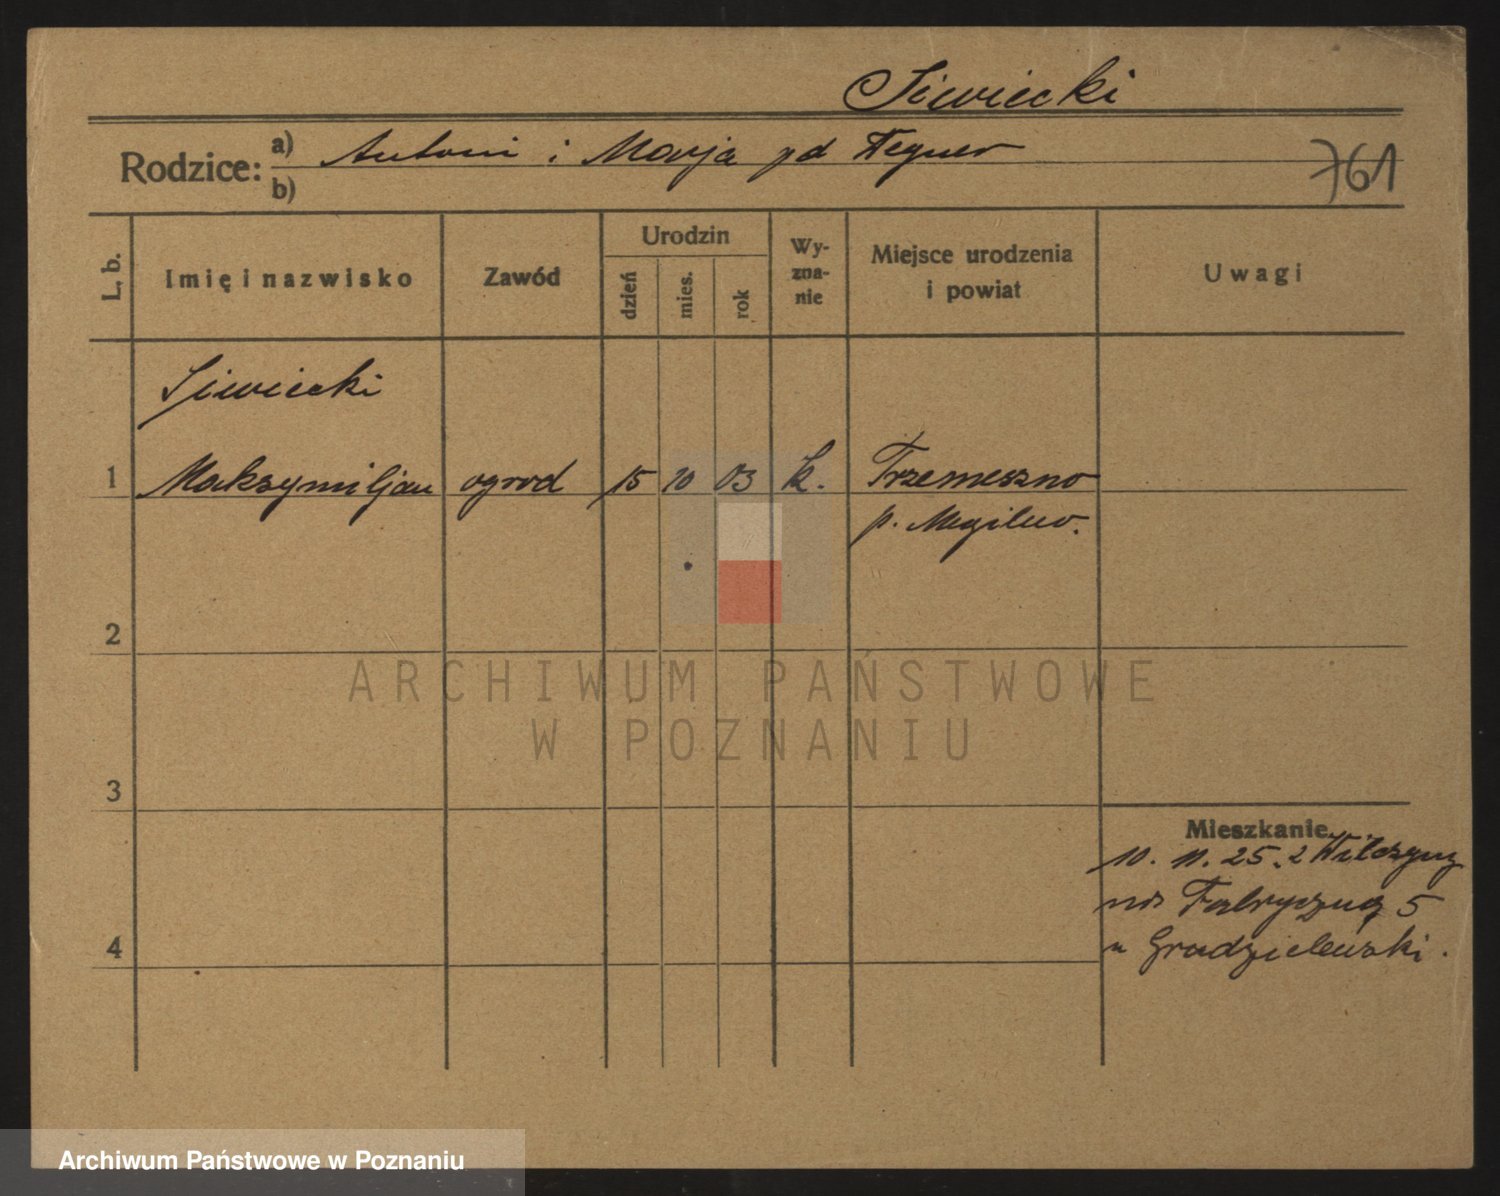 Siwiecki
Rodzice: a) Antoni i Marja pd Wegner
b)
761
L. b. Imię i nazwisko Zawód Urodzin dzień mies. rok Wy-zna-nie Miejsce urodzenia i powiat Uwagi
Siwiecki
1 Maksymiljan ogrod 15 10 03 k. Trzemeszno
p. Mogilno.
2
3
4
Mieszkanie
10. 11. 25. z Wilczyny
na Fabryczną 5
u Gradzielewski.
ARCHIWUM PAŃSTWOWE
W POZNANIU
Archiwum Państwowe w Poznaniu